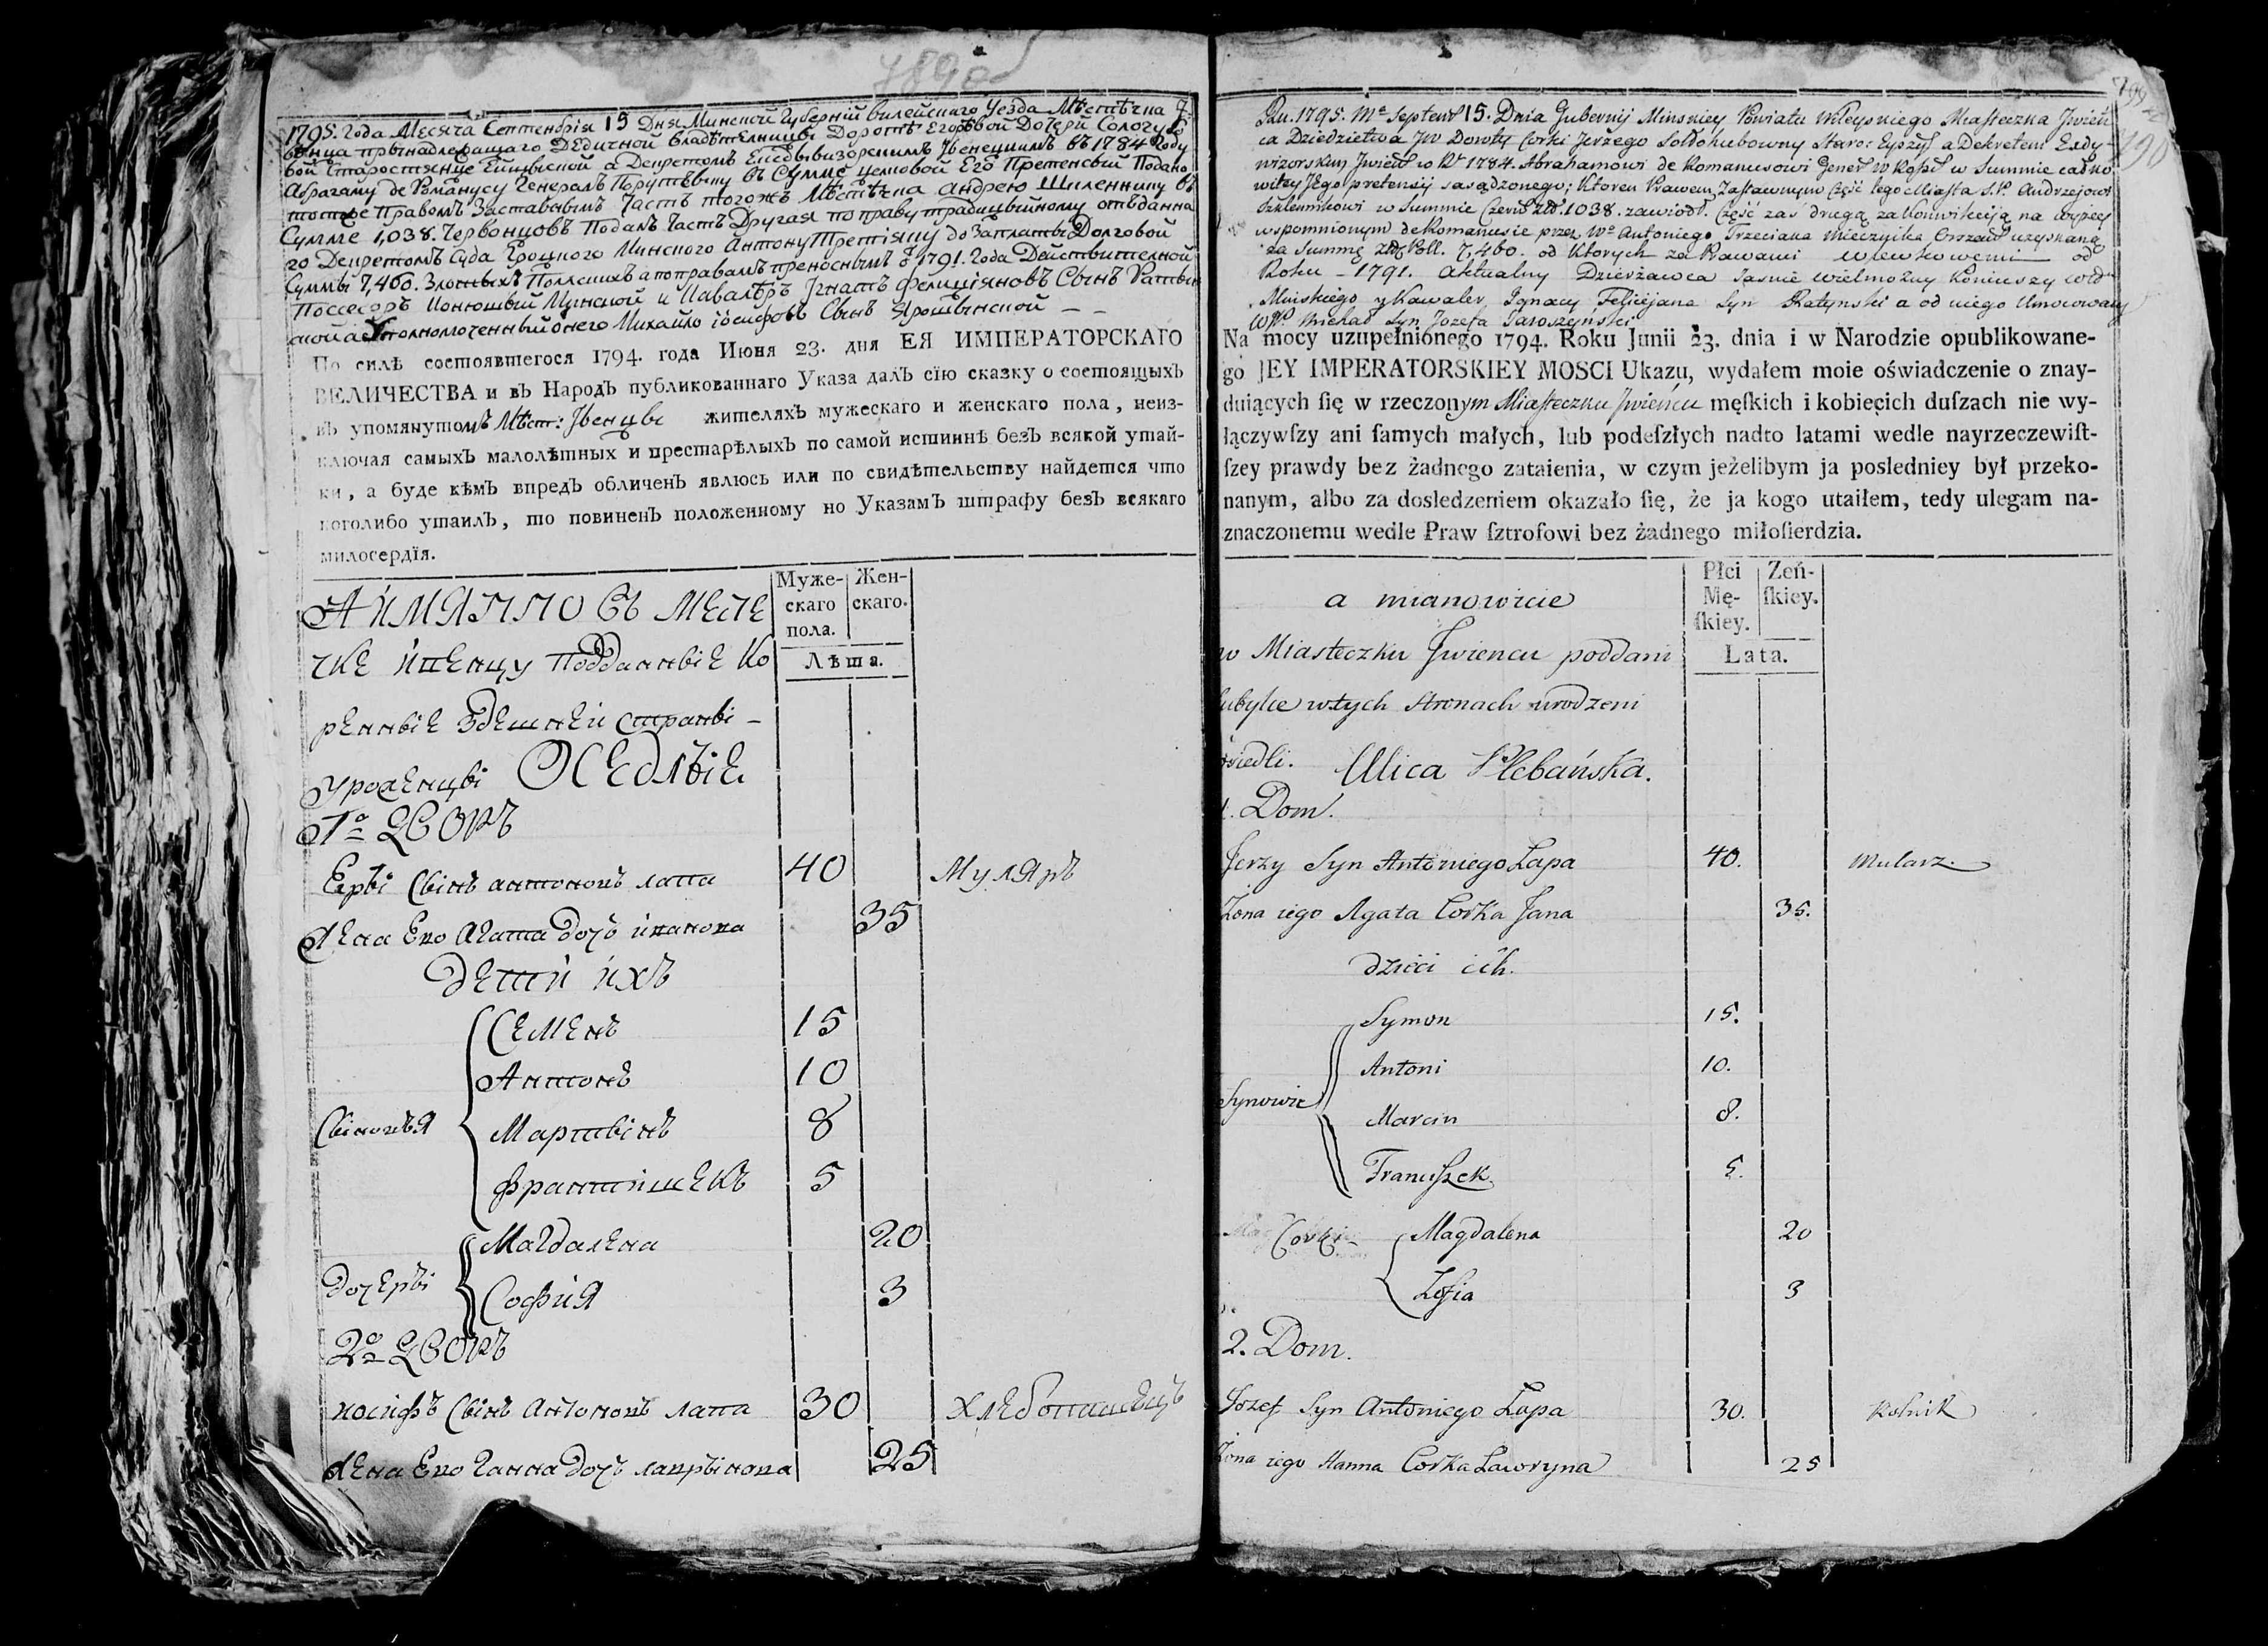 789
1795. Года Месяча Септенбрія 15 Дня Минской Губерній вилейскаго Уезда Мѣстѣчка
венца прынадлежащаго Дедичной владѣтелницы Доротѣ Егоровой Дочери Сологубо
вой Старостянце Ейшыской а Декретомъ Ексдывизорскимъ Ивенецкимъ въ 1784 Году
Абрагаму де Романусу Генералъ Порутчику въ Сумме целковой Его Претенсый
Правомъ Заставнымъ Часть тогожъ Мѣстѣчка Андрею Шкленнику въ
Сумме 1,038. Червонцовъ Подалъ Часть Другая по праву традицыйному отъданна
го Декретомъ Суда Гродцкого Минского Антону Третіяку до Заплаты Долговой
Суммы 7,460. Злотыхъ Полскихъ а поправамъ преноснымъ 1791. Года Действителной
Поссесоръ Конюшый Минской и Кавалѣръ Игнатъ Фелиціяновъ Сынъ Ратын
ской а Уполномоченный онего Михайло Іосифовъ Сынъ Ярошынской – –
По силѣ состоявшегося 1794. года Июня 23. дня ЕЯ ИМПЕРАТОРСКАГО
ВЕЛИЧЕСТВА и въ Народъ публикованнаго Указа далъ сїю сказку о состоящыхъ
въ упомянутомъ Мѣст: Ивенцы жителяхъ мужескаго и женскаго пола, неиз-
ключая самыхъ малолѣтныхъ и престарѣлыхъ по самой истиннѣ безъ всякой утай-
ки, а буде кѣмъ впредь обличенъ явлюсь или по свидѣтельству найдется что
коголибо утаилъ, то повиненъ положенному по Указамъ штрафу безъ всякаго
милосердїя.
Муже-
скаго
пола.
Жен-
скаго.
Лѣта.
А ИМЯННО Въ Месте
чке Ивенцу Подданные Ко
ренные Здешней страны –
Уроженцы Оседлые
1º Дворъ
Еры Сынъ антоновъ лапа 40 Муляръ
Жена Ево Агата дочь иванова 35
Дети ихъ
Семенъ 15
Антонъ 10
Сыновья
Мартынъ 8
Францишекъ 5
Магдалена 20
Дочеры
София 3
2º Дворъ
иосифъ Сынъ Антоновъ лапа 30 Хлебопашецъ
Жена Ево Ганна дочь лаврынова 25
790
Roku 1795. Mca Septemb 15. Dnia Gubernij Minskiey Powiatu Wileyskiego Miasteczka Iwień
ca Dziedzictwa JW Doroty Corki Jerzego Sołłohubowny Staroś: Eyszys: a Dekretem Exdy-
wizorskim Iwień w R 1784. Abrahamowi de Romanusowi w Summie całko
witey Jego pretensij sasądzonego; Ktoren Prawem Zastawnym Część tego Miasta S.P. Andrzejowi
Szklennikowi w Summie Czerw Zł. 1038. zawiodł. Część zaś drugą
wspomnionym deRomanusie przez Wº Antoniego Trzeciaka Mieczyika uzyskaną
za Summę Złł Poll. 7,460. od Ktorych za Prawami wlewkowemi od
Roku – 1791. aktualny Dzierżawca Jasnie Wielmożny Koniuszy Wtd
Minskiego y Kawaler Ignacy Felicyjana Syn Ratynski a od niego Umocowany
Michał Syn Jozefa Jaroszyński
Na mocy uzupełnionego 1794. Roku Junii 23. dnia i w Narodzie opublikowane-
go JEY IMPERATORSKIEY MOSCI Ukazu, wydałem moie oświadczenie o znay-
duiących się w rzeczonym Miasteczku Iwieńcu męſkich i kobiecich duſzach nie wy-
łączywſzy ani ſamych małych, lub podeſzłych nadto latami wedle nayrzeczewiſt-
ſzey prawdy bez żadnego zataienia, w czym jeżelibym ja posledniey był przeko-
nanym, albo za dosledzeniem okazało ſię, że ja kogo utaiłem, tedy ulegam na-
znaczonemu wedle Praw ſztrofowi bez żadnego miłoſierdzia.
Płci
Mę-
ſkiey.
Zeń-
ſkiey.
Lata.
a mianowicie
w Miasteczku Iwiencu poddani
ubylce wtych stronach urodzeni
osiedli. Ulica Plebańska.
1. Dom.
Jerzy Syn Antoniego Łapa 40. Mularz.
Zona iego Agata Corka Jana 35.
dzieci ich.
Symon 15.
Antoni 10.
Synowie
Marcin 8.
Franciszek 5.
Corki Magdalena 20
Zofia 3
2. Dom.
Jozef Syn Antoniego Łapa 30. Rolnik
Zona iego Hanna Corka Lawryna 25